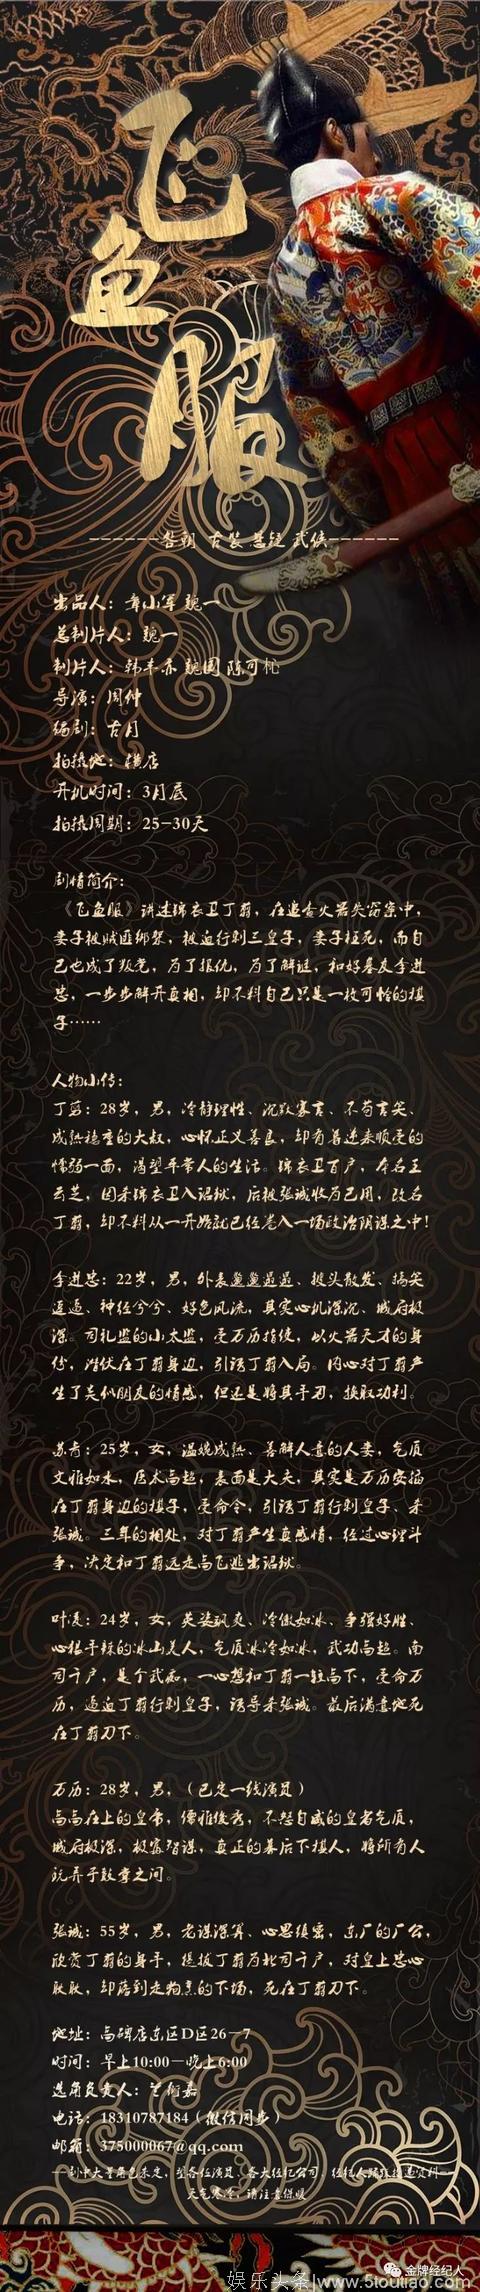 飞
鱼
服
古装 悬疑 武侠
出品人：
总制片人：魏一
制片人：
导演：周仲
编剧：古月
拍摄地：横店
开机时间：3月底
拍摄周期：25-30天
剧情简介：
《飞鱼服》讲述锦衣卫丁翦，在追查火器失窃案中，
妻子被贼匪绑架，被迫行刺三皇子，妻子枉死，而自
己也成了叛党，为了报仇，为了解谜，和好基友李进
忠，一步步解开真相，却不料自己只是一枚可怜的棋
子……
人物小传：
丁翦：28岁，男，冷静理性、沉默寡言、不苟言笑、
成熟稳重的大叔，心怀正义善良，却有着逆来顺受的
懦弱一面，渴望平常人的生活。锦衣卫百户，本名王
云芝，因杀锦衣卫入诏狱，后被张诚收为己用，改名
丁翦，却不料从一开始就已经卷入一场政治阴谋之中！
李进忠：22岁，男，外表邋邋遢遢、披头散发、搞笑
逗逼、神经兮兮、好色风流，其实心机深沉、城府极
深。司礼监的小太监，受万历指使，以火器天才的身
份，潜伏在丁翦身边，引诱丁翦入局。内心对丁翦产
生了类似朋友的情感，但还是将其手刃，换取功利。
苏青：25岁，女，温婉成熟、善解人意的人妻，气质
文雅如水，医术高超，表面是大夫，其实是万历安插
在丁翦身边的棋子，受命令，引诱丁翦行刺皇子、杀
张诚。三年的相处，对丁翦产生真感情，经过心理斗
争，决定和丁翦远走高飞逃出诏狱。
叶凌：24岁，女，英姿飒爽、冷傲如冰、争强好胜、
心狠手辣的冰山美人，气质冰冷如冰，武功高超。南
司千户，是个武痴，一心想和丁翦一较高下，受命万
历，逼迫丁翦行刺皇子，诱导杀张诚。最后满意地死
在丁翦刀下。
万历：28岁，男，（已定一线演员）
高高在上的皇帝，儒雅俊秀，不怒自威的皇者气质，
城府极深，极富智谋，真正的幕后下棋人，将所有人
玩弄于鼓掌之间。
张诚：55岁，男，老谋深算、心思缜密，东厂的厂公，
欣赏丁翦的身手，提拔丁翦为北司千户，对皇上忠心
耿耿，却落到走狗烹的下场，死在丁翦刀下。
地址：高碑店东区D区26-7
时间：早上10:00-晚上6:00
选角负责人：
电话：18310787184（微信同步）
邮箱：375000067@qq.com
天气寒冷，请注意保暖
金牌经纪人
娱乐头条 www.5touliao.com